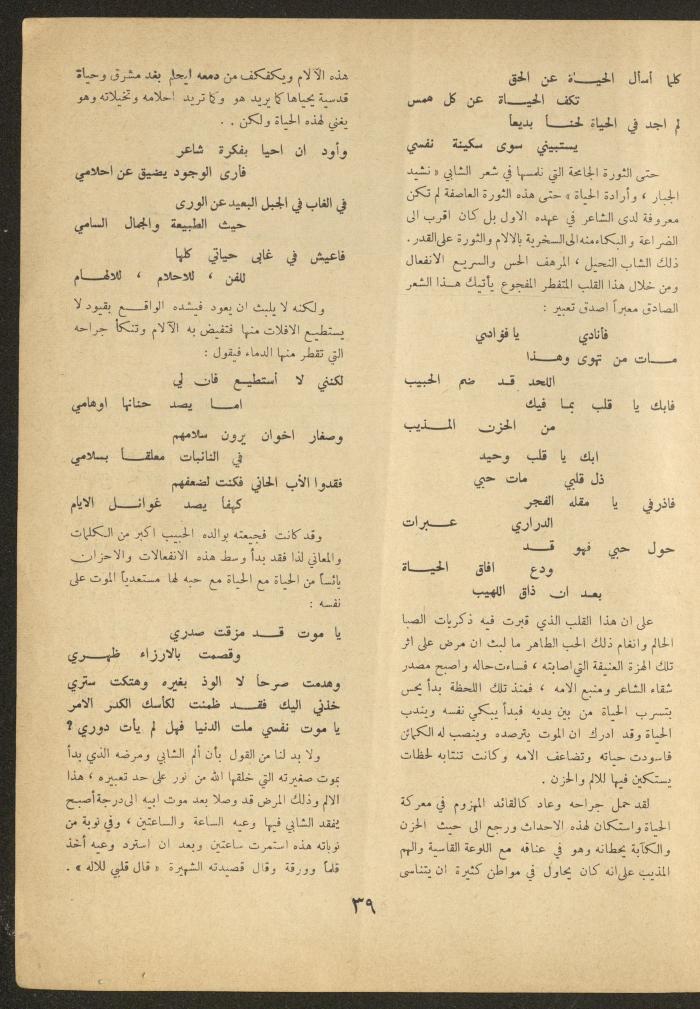 كلما أسأل الحياة عن الحق
تكف الحياة عن كل همس
لم اجد في الحياة لحناً بديعاً
يستبيني سوى سكينة نفسي
حتى الثورة الجامحة التي نلمسها في شعر الشابي « نشيد
الجبار ، وأرادة الحياة » حتى هذه الثورة العاصفة لم تكن
معروفة لدى الشاعر في عهده الاول بل كان اقرب الى
الضراعة والبكاء منه الى السخرية بالالام والثورة على القدر .
ذلك الشاب النحيل ، المرهف الحس والسريع الانفعال
ومن خلال هذا القلب المتفطر المفجوع يأتيك هذا الشعر
الصادق معبراً اصدق تعبير :
فأنادي يا فؤادي
مات من تهوى وهذا
اللحد قد ضم الحبيب
فابك يا قلب بما فيك
من الحزن المذيب
ابك يا قلب وحيد
ذل قلبي مات حبي
فاذرفي يا مقله الفجر
الدراري عبرات
حول حبي فهو قد
ودع افاق الحياة
بعد ان ذاق اللهيب
على ان هذا القلب الذي قبرت فيه ذكريات الصبا
الحالم وانغام ذلك الحب الطاهر ما لبث ان مرض على اثر
تلك الهزة العنيفة التي اصابته ، فساءت حاله واصبح مصدر
شقاء الشاعر ومنبع الامه ، فمنذ تلك اللحظة بدأ يحس
بتسرب الحياة من بين يديه فبدأ يبكي نفسه ويندب
الحياة وقد ادرك ان الموت يترصده وينصب له الكمائن
فاسودت حياته وتضاعف الامه وكانت تنتابه لحظات
يستكين فيها للالم والحزن .
لقد حمل جراحه وعاد كالقائد المهزوم في معركة
الحياة واستكان لهذه الاحداث ورجع الى حيث الحزن
والكآبة يحطانه وهو في عناقه مع اللوعة القاسية والهم
المذيب على انه كان يحاول في مواطن كثيرة ان يتناسى
هذه الآلام ويكفكف من دمعه ليحلم بغد مشرق وحياة
قدسية يحياها كما يريد هو وكما تريد احلامه وتخيلاته وهو
يغني لهذه الحياة ولكن . .
وأود ان احيا بفكرة شاعر
فأرى الوجود يضيق عن احلامي
في الغاب في الجبل البعيد عن الورى
حيث الطبيعة والجمال السامي
فاعيش في غابي حياتي كلها
للفن ، للاحلام ، للالهام
ولكنه لا يلبث ان يعود فيشده الواقع بقيود لا
يستطيع الافلات منها فتفيض به الآلام وتنكأ جراحه
التي تقطر منها الدماء فيقول :
لكنني لا أستطيع فان لي
اما يصد حنانها اوهامي
وصغار اخوان يرون سلامهم
في النائبات معلقاً بسلامي
فقدوا الأب الحاني فكنت لضعفهم
كهفا يصد غوائل الايام
وقد كانت فجيعته بوالده الحبيب اكبر من الكلمات
والمعاني لذا فقد بدأ وسط هذه الانفعالات والاحزان
يائساً من الحياة مع الحياة مع حبه لها مستعدياً الموت على
نفسه :
يا موت قد مزقت صدري
وقصمت بالارزاء ظهري
وهدمت صرحاً لا الوذ بغيره وهتكت ستري
خذني اليك فقد ظمئت لكأسك الكدر الامر
يا موت نفسي ملت الدنيا فهل لم يأت دوري ؟
ولا بد لنا من القول بأن ألم الشابي ومرضه الذي بدأ
بموت صغيرته التي خلقها الله من نور على حد تعبيره ، هذا
الالم وذلك المرض قد وصلا بعد موت ابيه الى درجة أصبح
يفقد الشابي فيها وعيه الساعة والساعتين ، وفي نوبة من
نوباته هذه استمرت ساعتين وبعد ان استرد وعيه أخذ
قلماً وورقة وقال قصيدته الشهيرة « قال قلبي للاله » .
٣٩